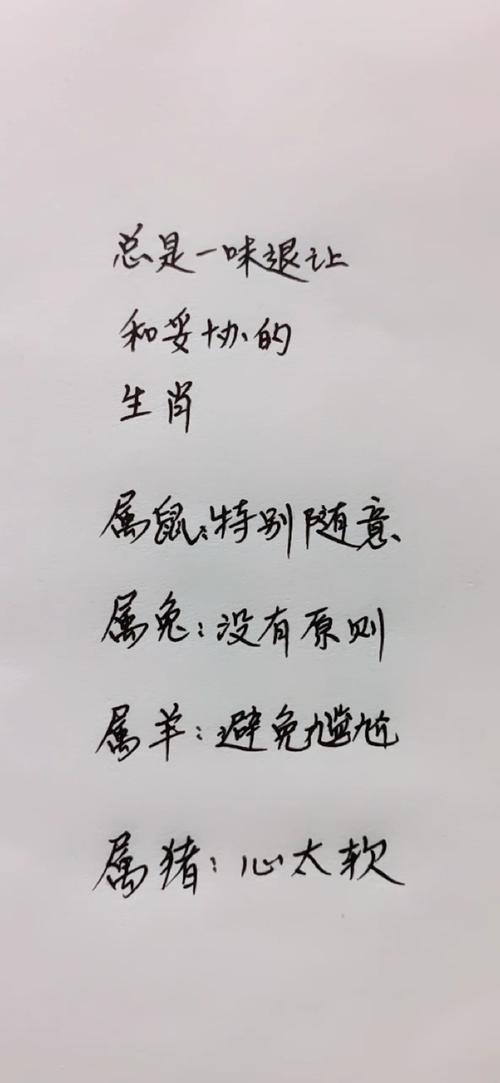 总是一味退让
和妥协的
生肖
属鼠:特别随意
属兔:没有原则
属羊:避免尴尬
属猪:心太软